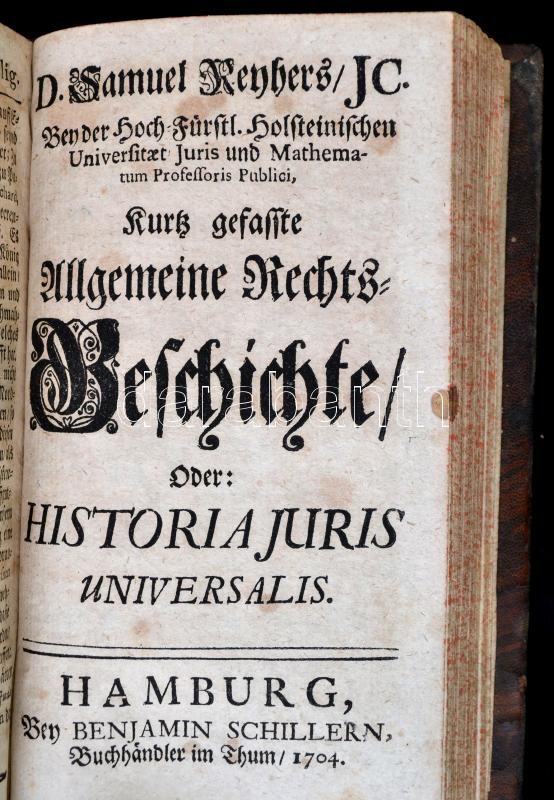 D. Samuel Reyhers/ JC.
Bey der Hoch-Fürstl. Holsteinischen
Universitæt Juris und Mathema-
tum Professoris Publici,
Kurtz gefasste
Allgemeine Rechts-
Geschichte/
Oder:
HISTORIA JURIS
UNIVERSALIS.
HAMBURG,
Bey BENJAMIN SCHILLERN,
Buchhändler im Thum/ 1704.
darabanth